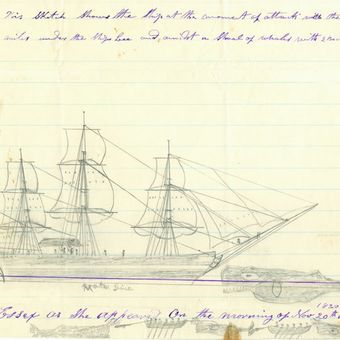 This Sketch shows the Ship at the moment of attack with the
miles under the Ships Lee and, amidst a Shoal of whales with 2
Water line
Essex as She appeared On the morning of Nov 20th
1820